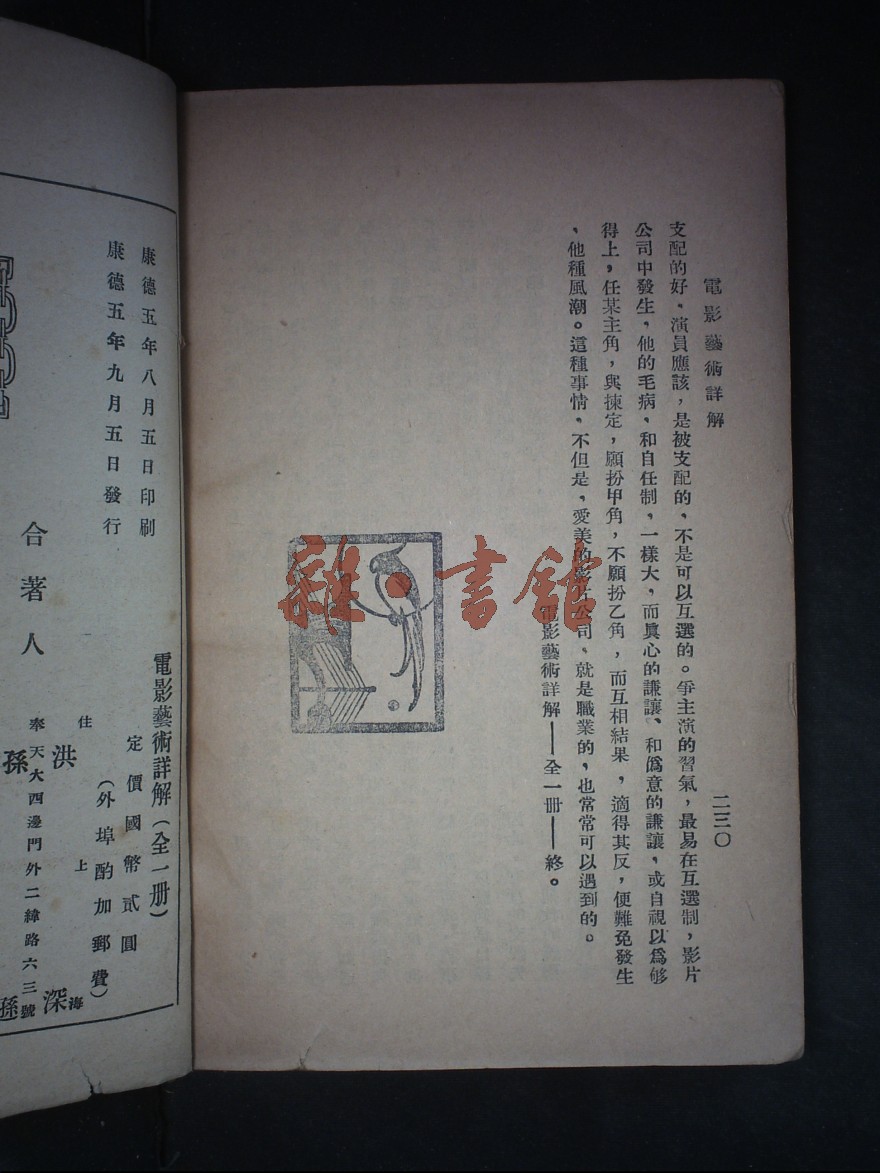 電影藝術詳解
二三〇
支配的好，演員應該，是被支配的，不是可以互選的。爭主演的習氣，最易在互選制，影片
公司中發生，他的毛病，和自任制，一樣大，而眞心的謙讓、和僞意的謙讓，或自視以爲够
得上，任某主角，與揀定，願扮甲角，不願扮乙角，而互相結果，適得其反，便難免發生
、他種風潮。這種事情，不但是，愛美的影片公司、就是職業的，也常常可以遇到的。
電影藝術詳解——全一冊——終。
雜·書館
電影藝術詳解（全一冊）
定價國幣貳圓
（外埠酌加郵費）
康德五年八月五日印刷
康德五年九月五日發行
住上海
洪深
奉天大西邊門外二緯路六三號
孫孫
合著人